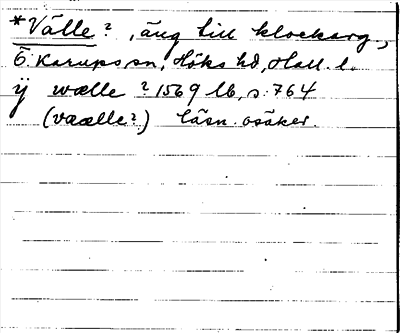 *Välle?, äng till klockarg.,
Ö. Karups sn, Höks hd, Hall. l.
ÿ wælle ? 1569 lb, s. 764
(vaælle?) läsn. osäker.